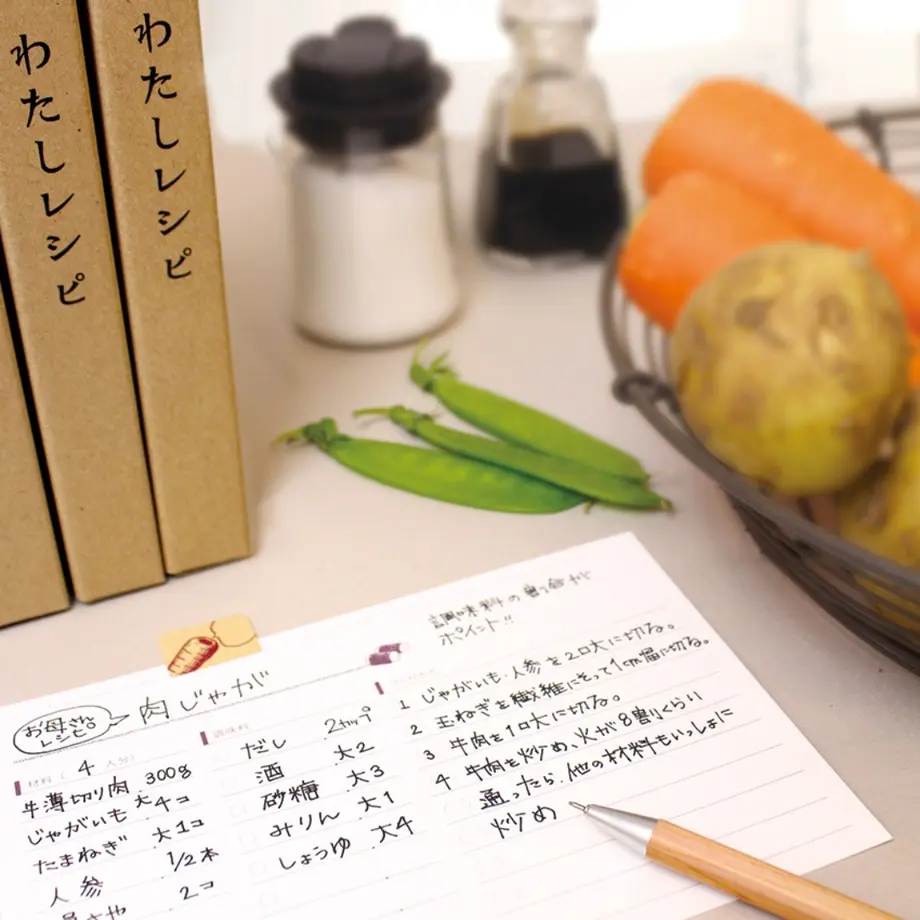 わたしレシピ
わたしレシピ
調味料の割合が
ポイント!!
お母さん
レシピ
肉じゃが
材料( 4 人分)
牛薄切り肉 300g
じゃがいも 大4コ
たまねぎ 大1コ
人参 1/2本
2コ
調味料
だし 2カップ
酒 大2
砂糖 大3
みりん 大1
しょうゆ 大4
1 じゃがいも、人参を2口大に切る。
2 玉ねぎを繊維にそって1cm届に切る。
3 牛肉を1口大に切る。
4 牛肉を炒め、火が8割くらい
通ったら、他の材料もいっしょに
炒め